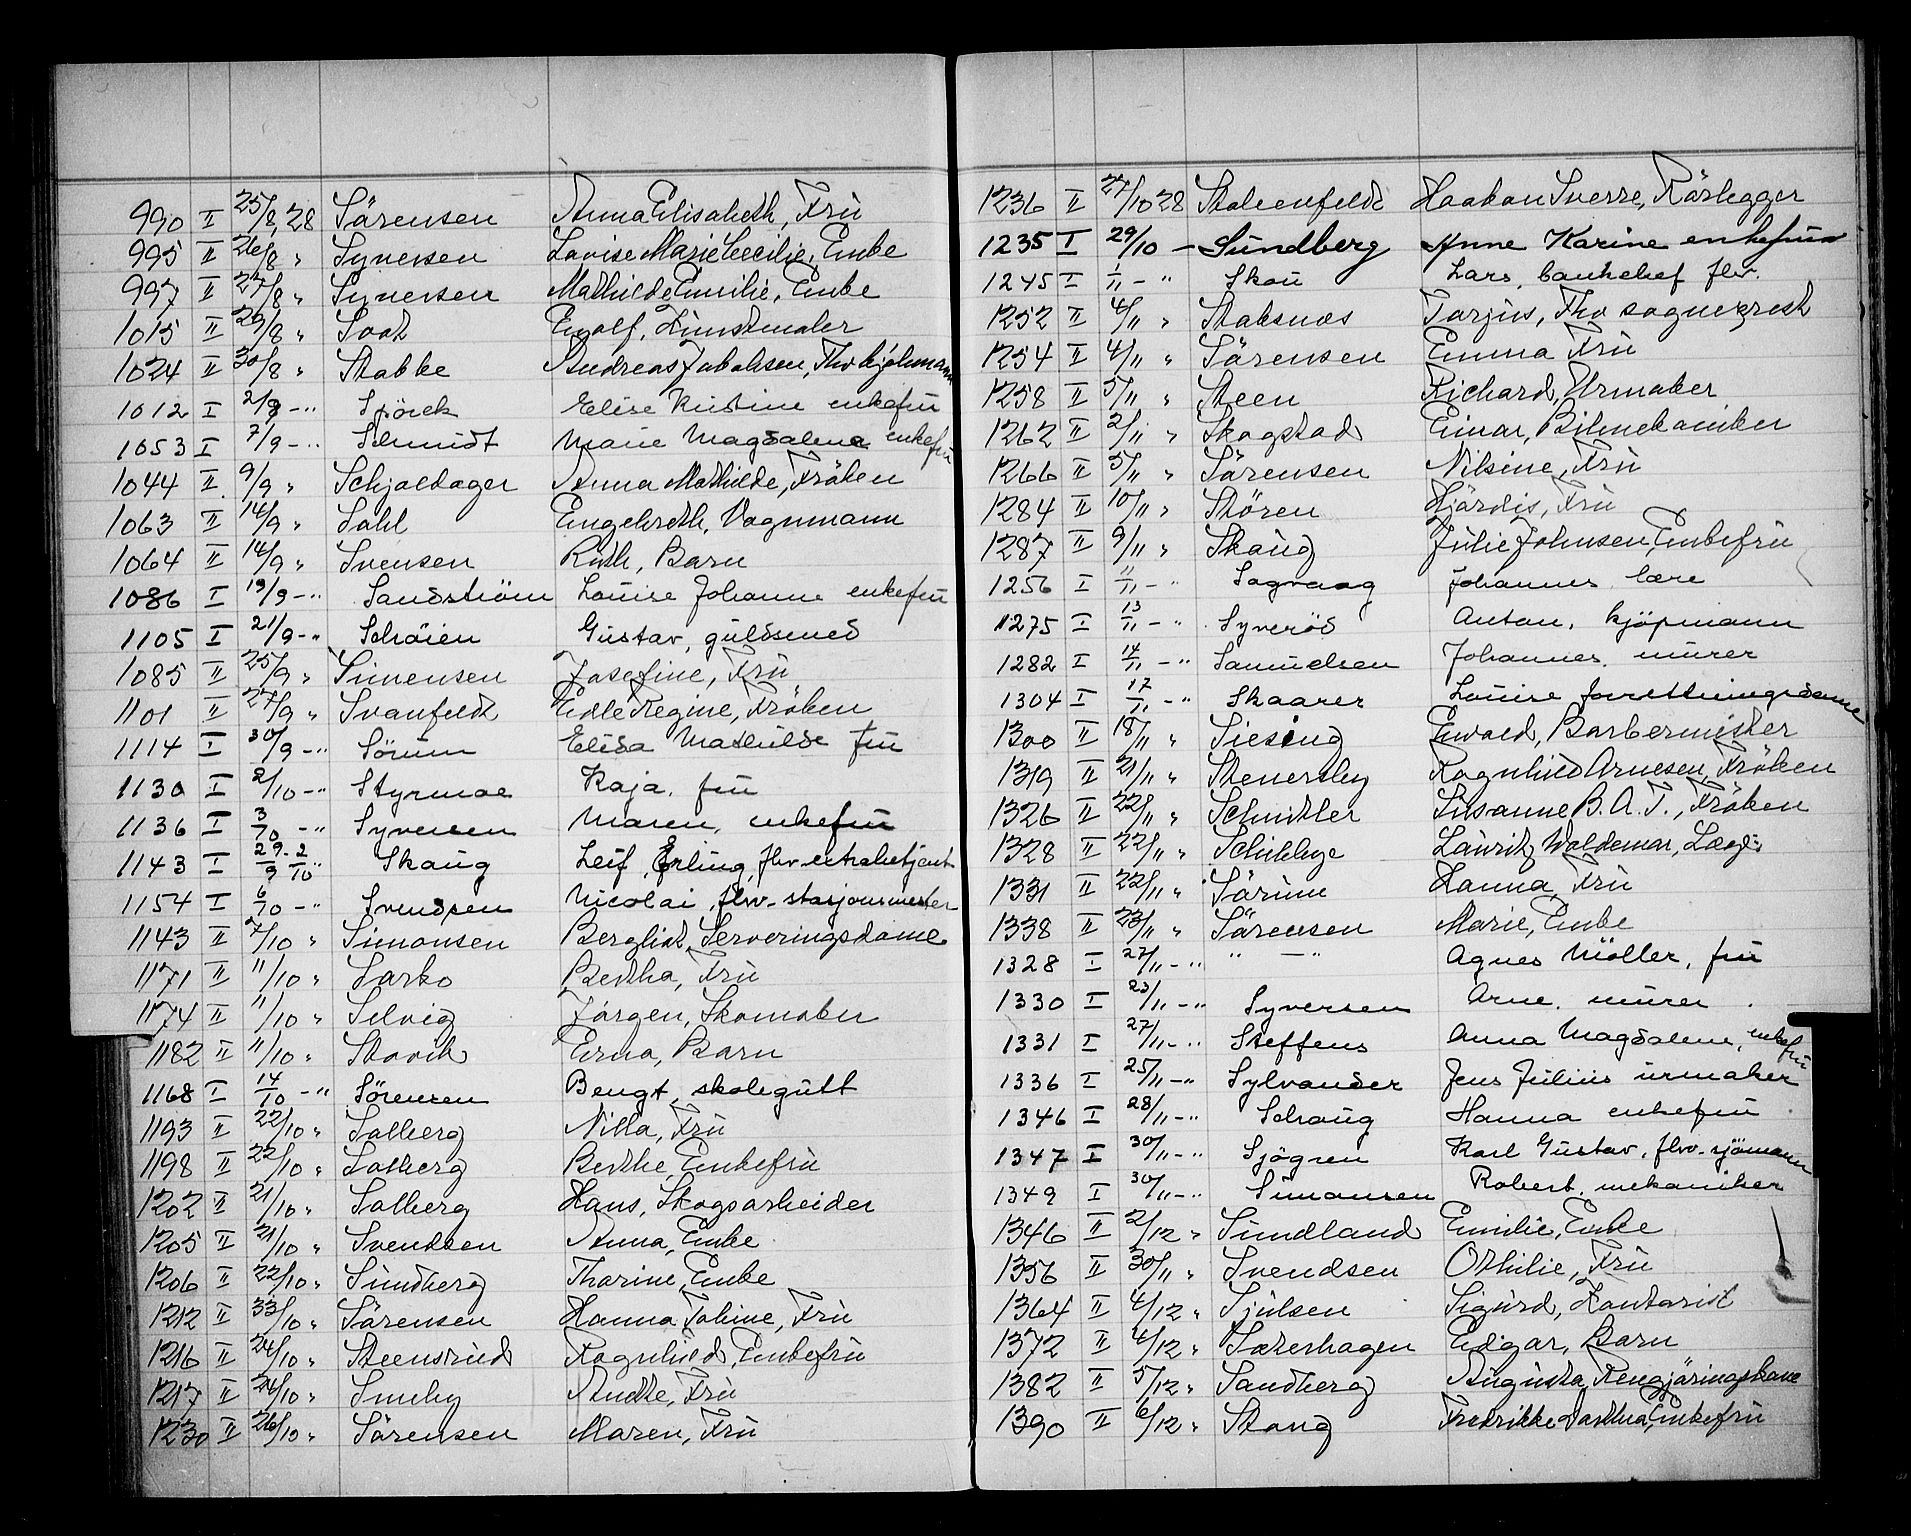 990 II 25/8, 28 Sörensen Anna Elisabeth, Fru
995 II 26/8 " Syversen Lovise Marie Cecilie, Enke
997 II 27/8 " Syversen Mathilde Emilie, Enke
1015 II 29/8 " Soot Eyolf, Kunstmaler
1024 II 30/8 " Stabke Andreas Jakobsen, Fhv kjøbmann
1012 I 2/9 -" Sjörck Elise Kristine enkefru
1053 I 7/9 -" Schmidt Marie Magdalena enkefru
1044 II 9/9 " Schjoldager Anna Mathilde, Fröken
1063 II 14/9 " Sahl Engebreth, Vognmann
1064 II 14/9 " Svensen Ruth, Barn
1086 I 19/9 -" Sandström Louise Johanne enkefru
1105 I 21/9 -" Schøien Gustav, guldsmed
1085 II 25/9 " Simensen Josefine, Fru
1101 II 27/9 " Svanfeldt Edle Regine, Fröken
1114 I 30/9 -" Sørum Elida Mathilde fru
1130 I 2/10 -" Styrmoe Kaja, fru
1136 I 3/10 -" Syversen Maren, enkefru
1143 I 29/9-2/10 " Skaug Leif Erling, fhv. extrabetjent
1154 I 6/10 -" Svendsen Nicolai, fhv. stasjonsmester
1143 II 7/10 " Simonsen Bergliot, Serveringsdame
1171 II 11/10 " Sarko Bertha, Fru
1174 II 11/10 " Selvig Jörgen, Skomaker
1182 II 11/10 " Stavik Erna, Barn
1168 I 14/10 -" Sörensen Bengt, skolegutt
1193 II 22/10 " Solberg Nilla, Fru
1198 II 22/10 " Solberg Berthe, Enkefru
1202 II 21/10 " Solberg Hans, Skogsarbeider
1205 II 21/10 " Svendsen Anna, Enke
1206 II 22/10 " Sundberg Thorine, Enke
1212 II 33/10 " Sörensen Hanna Tobine, Fru
1216 II 24/10 " Steensrud Ragnhild, Enkefru
1217 II 24/10 " Smeby Andte, Fru
1230 II 26/10 " Sörensen Maren, Fru
1236 II 27/10 28 Stoltenfeldt Haakon Sverre, Rörlegger
1235 I 29/10 - Sundberg Anne Karine enkefru
1245 I 1/11 -" Skou Lars, bankchef fhv.
1252 II 4/11 " Staksnæs Torjus, Fhv sogneprest
1254 II 4/11 " Sörensen Emma Fru
1258 II 5/11 " Steen Richard, Urmaker
1262 II 2/11 " Skogstad Einar, Bilmekaniker
1266 II 5/11 " Sörensen Nilsine, Fru
1284 II 10/11 " Stören Hjördis, Fru
1287 II 9/11 " Skaug Julie Johnsen, Enkefru
1256 I 11/11 -" Sagvaag Johannes, lære
1275 I 13/11 -" Syverød Anton, kjöpmann
1282 I 14/11 -" Samuelsen Johannes, murer
1304 I 17/11 -" Skaarer Louise forretningsdame
1300 II 18/11 " Siesing Ewald, Barbermester
1319 II 21/11 " Stenersby Ragnhild Arnesen, Fröken
1326 II 22/11 " Schnitler Susanne B. A. T., Fröken
1328 II 22/11 " Schibbye Lauritz Waldemar, Læge
1331 II 22/11 " Sörum Hanna, Fru
1338 II 23/11 " Sörensen Marie, Enke
1328 I 27/11 -" " — " Agnes Möller, fru
1330 I 23/11 -" Syversen Arne, murer
1331 I 27/11 -" Steffens Anna Magdalene, enkefru
1336 I 25/11 -" Sylvander Jens Julius urmaker
1346 I 28/11 -" Schaug Hanna enkefru
1347 I 30/11 -" Sjögren Karl Gustav, fhv. sjömann
1349 I 30/11 -" Simonsen Robert, mekaniker
1346 II 2/12 " Sundland Emilie, Enke
1356 II 30/11 " Svendsen Othilie, Fru
1364 II 4/12 " Sjulsen Sigurd, Kontorist
1372 II 4/12 " Sæterhagen Edgar, Barn
1382 II 5/12 " Sandberg Augusta, Rengjöringskone
1390 II 6/12 " Stang Fredrikke Dorthea, Enkefru